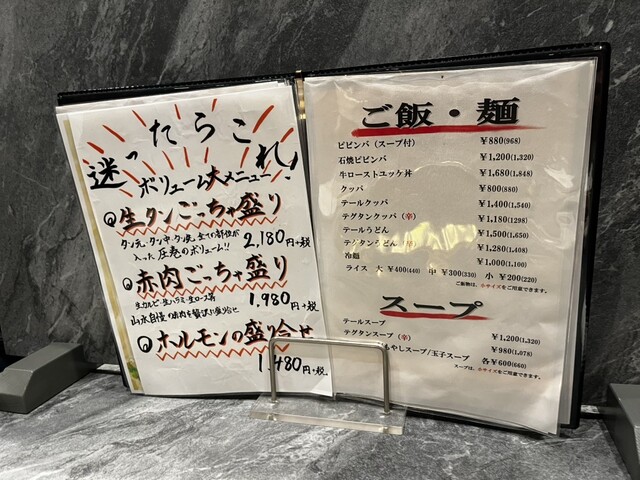 迷ったらこれ!
ボリューム大メニュー
生タンごっちゃ盛り
タン元、タン中、タン先、全ての部位が
入った圧巻のボリューム!!
2,180円+税
赤肉ごっちゃ盛り
生カルビ・生ハラミ・生ロース等
山水自慢の赤肉を贅沢に盛合せ
1,980円+税
ホルモンの盛り合せ
1,480円+税
ご飯・麺
ビビンバ(スープ付) ¥880(968)
石焼ビビンバ ¥1,200(1,320)
牛ローストユッケ丼 ¥1,680(1,848)
クッパ ¥800(880)
テールクッパ ¥1,400(1,540)
テグタンクッパ(辛) ¥1,180(1298)
テールうどん ¥1,500(1,650)
テグタンうどん(辛) ¥1,280(1,408)
冷麺 ¥1,000(1,100)
ライス 大 ¥400(440) 中 ¥300(330) 小 ¥200(220)
ご飯物は、小サイズをご用意できます。
スープ
テールスープ ¥1,200(1,320)
テグタンスープ(辛) ¥980(1,078)
やしスープ/玉子スープ 各¥600(660)
スープは、小サイズをご用意できます。